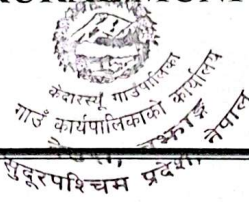 केदारस्यूँ गाउँपालिका
गाउँ कार्यपालिकाको कार्यालय
बझाङ्ग
सुदूरपश्चिम प्रदेश, नेपाल